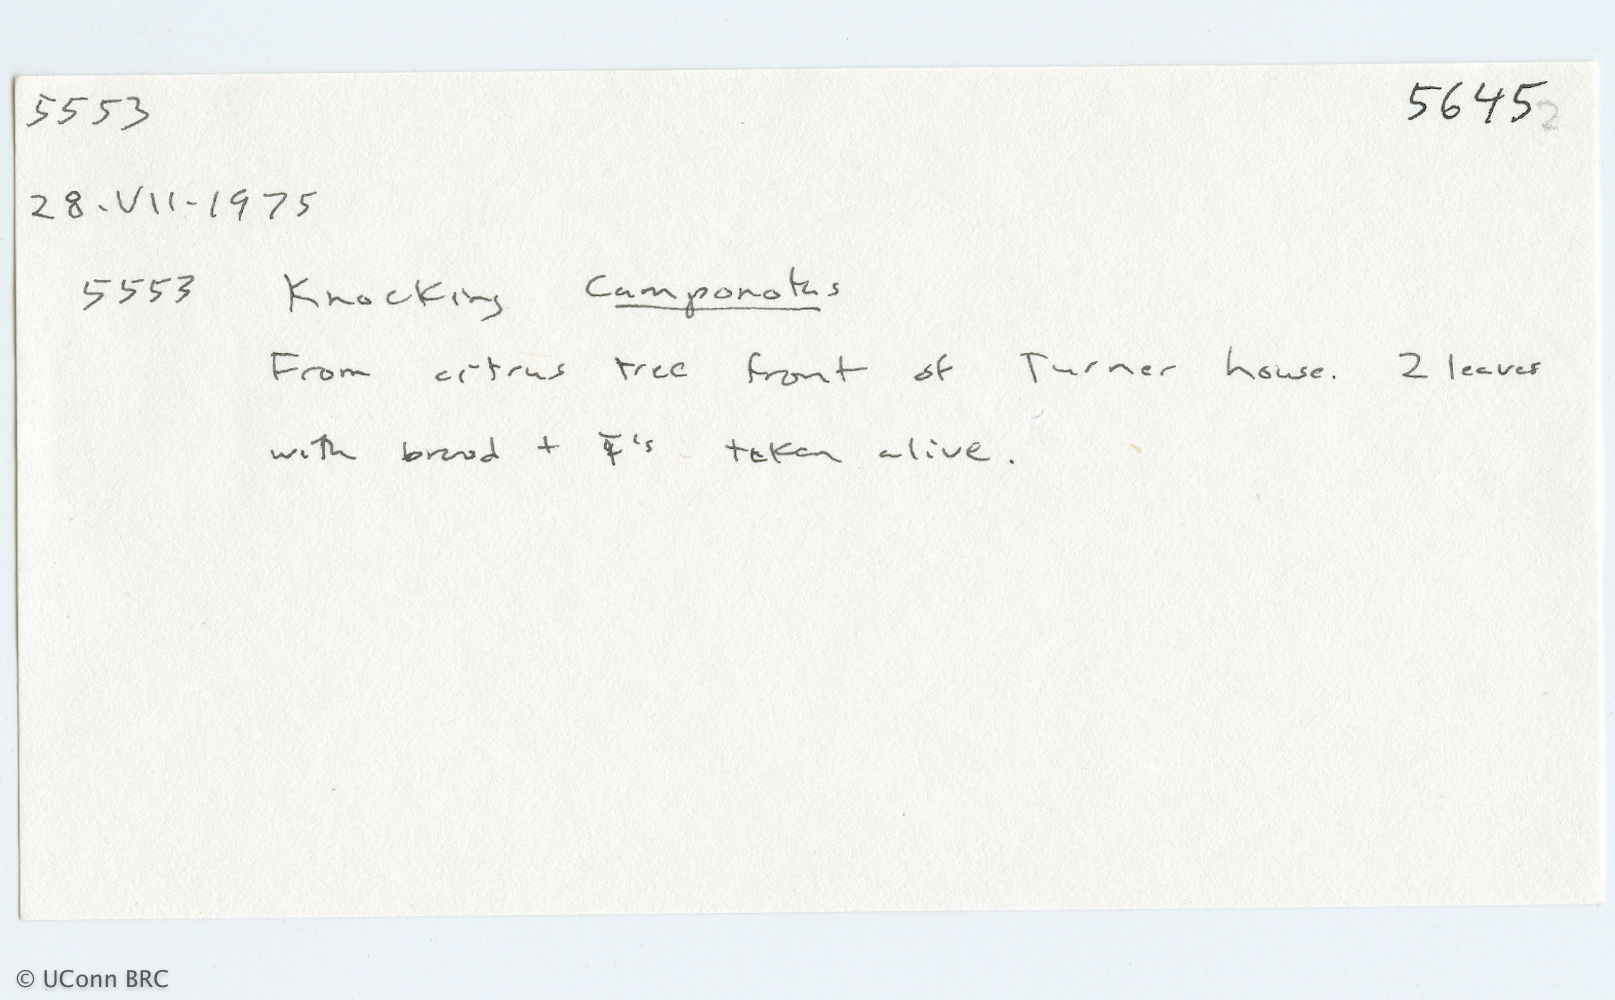 5553
5645
28.VII-1975
5553 Knocking Camponotus
From citrus tree front of Turner house. 2 leaves
with brood + ☿'s taken alive.
© UConn BRC